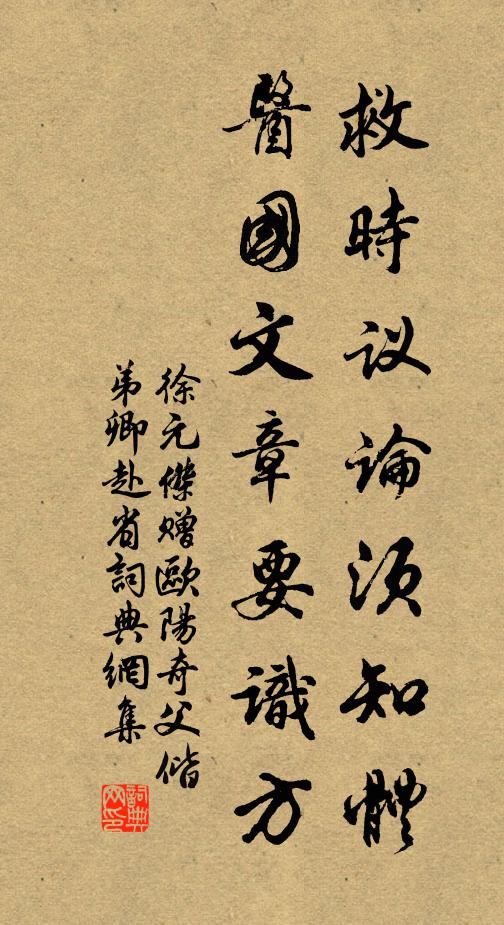 救時议論須知體
醫國文章要識方
徐元傑贈歐陽奇父偕
弟卿赴省詞典網集
詞典网印